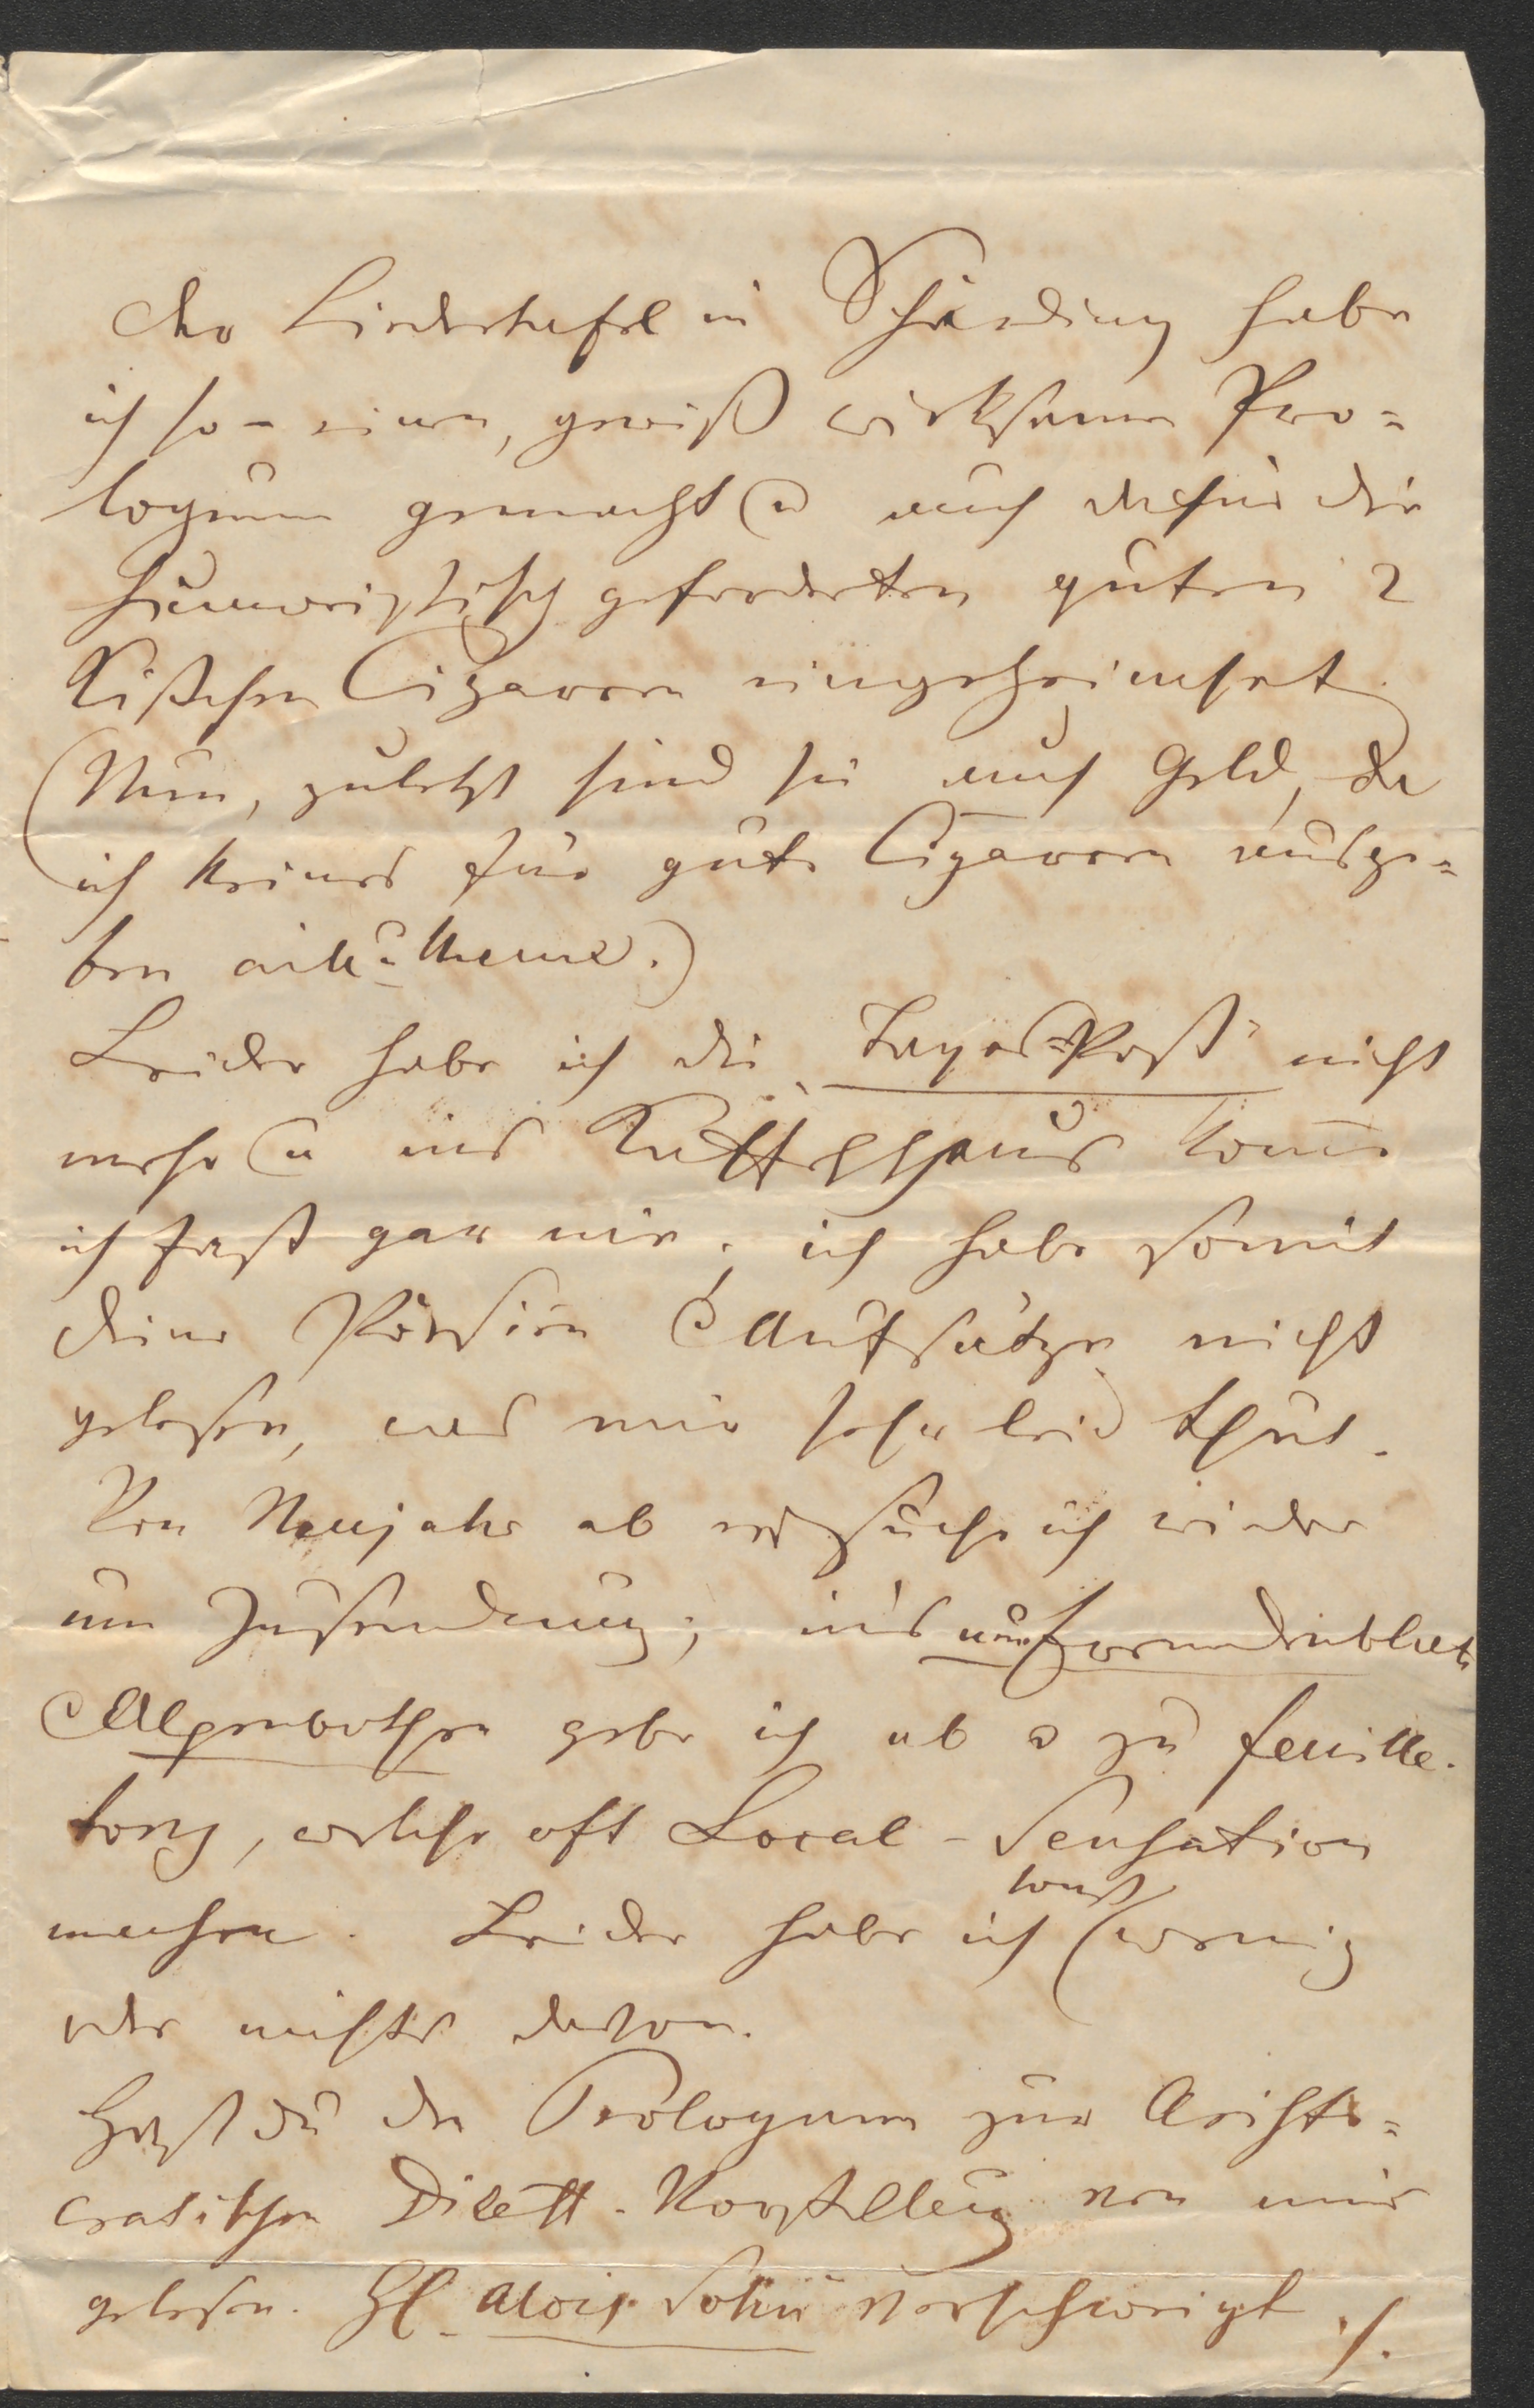 Der Liedertafel in Schärding habe
ich so- einen, gewiß wirksamen Pro=
logum gemacht u auch dafür die
humoristisch geforderten guten 2
Kistchen Cigarren eingeheimset.
(Nun, zuletzt sind sie auch Geld, da
ich keines für gute Cigarren ausge=
ben .)
Leider habe ich die „Tages-Post“ nicht
mehr u ins Kaffehhaus kome
ich fast gar nie; ich habe somit
deine Aufsätze nicht
gelesen, was mir sehr leid thut.
Von Neujahr ab ersuche ich wieder
um Zusendung; in's
Alpenbothen gebe ich ab u zu feuille-
tons, welche oft Local-Sensation
machen. Leider habe ich sonst wenig
oder nichts davon.
Hast du den Prologum zur Aristo=
cratischen Dilett. Vorstellung von mir
gelesen. H. Alois verschweigt ./.